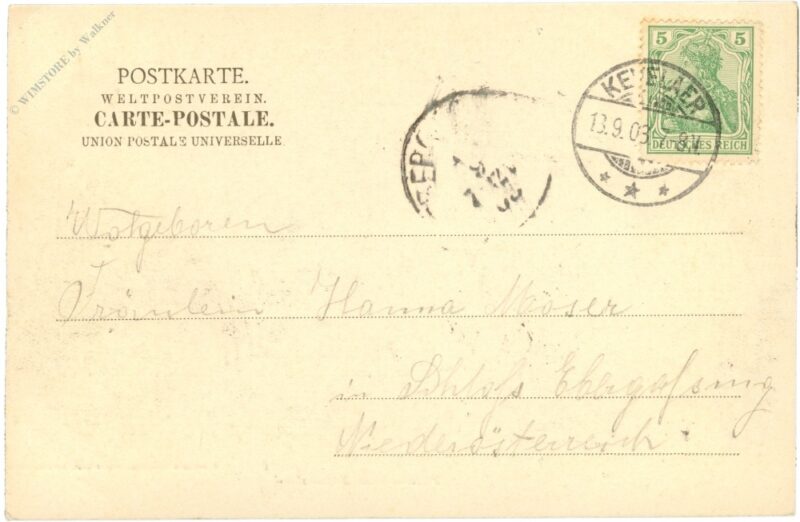 © WIMSTORE by Walkner
POSTKARTE.
WELTPOSTVEREIN.
CARTE-POSTALE.
UNION POSTALE UNIVERSELLE
5 5
DEUTSCHES REICH
KEVELAER
13.9.03. 8.V.
* * *
EBERG
Wolgeboren
Fräulein Hanna Moser
in Schloß Ebergassing
Niederösterreich